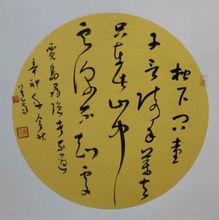 松下問童
子言師采藥去
只在此山中
云深不知處
賈島尋隱者不遇
辛卯年金秋